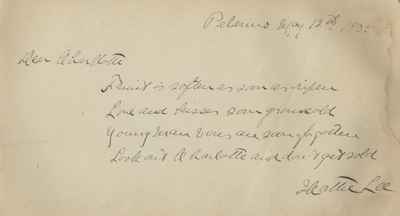 Palermo May 12th 1885
Dear Charlotte
Fruit is soften as soon as ripen
Love and kisses soon grow old
Young men's vows are soon forgotten
Look out Charlotte and don't get sold
Hattie Lee